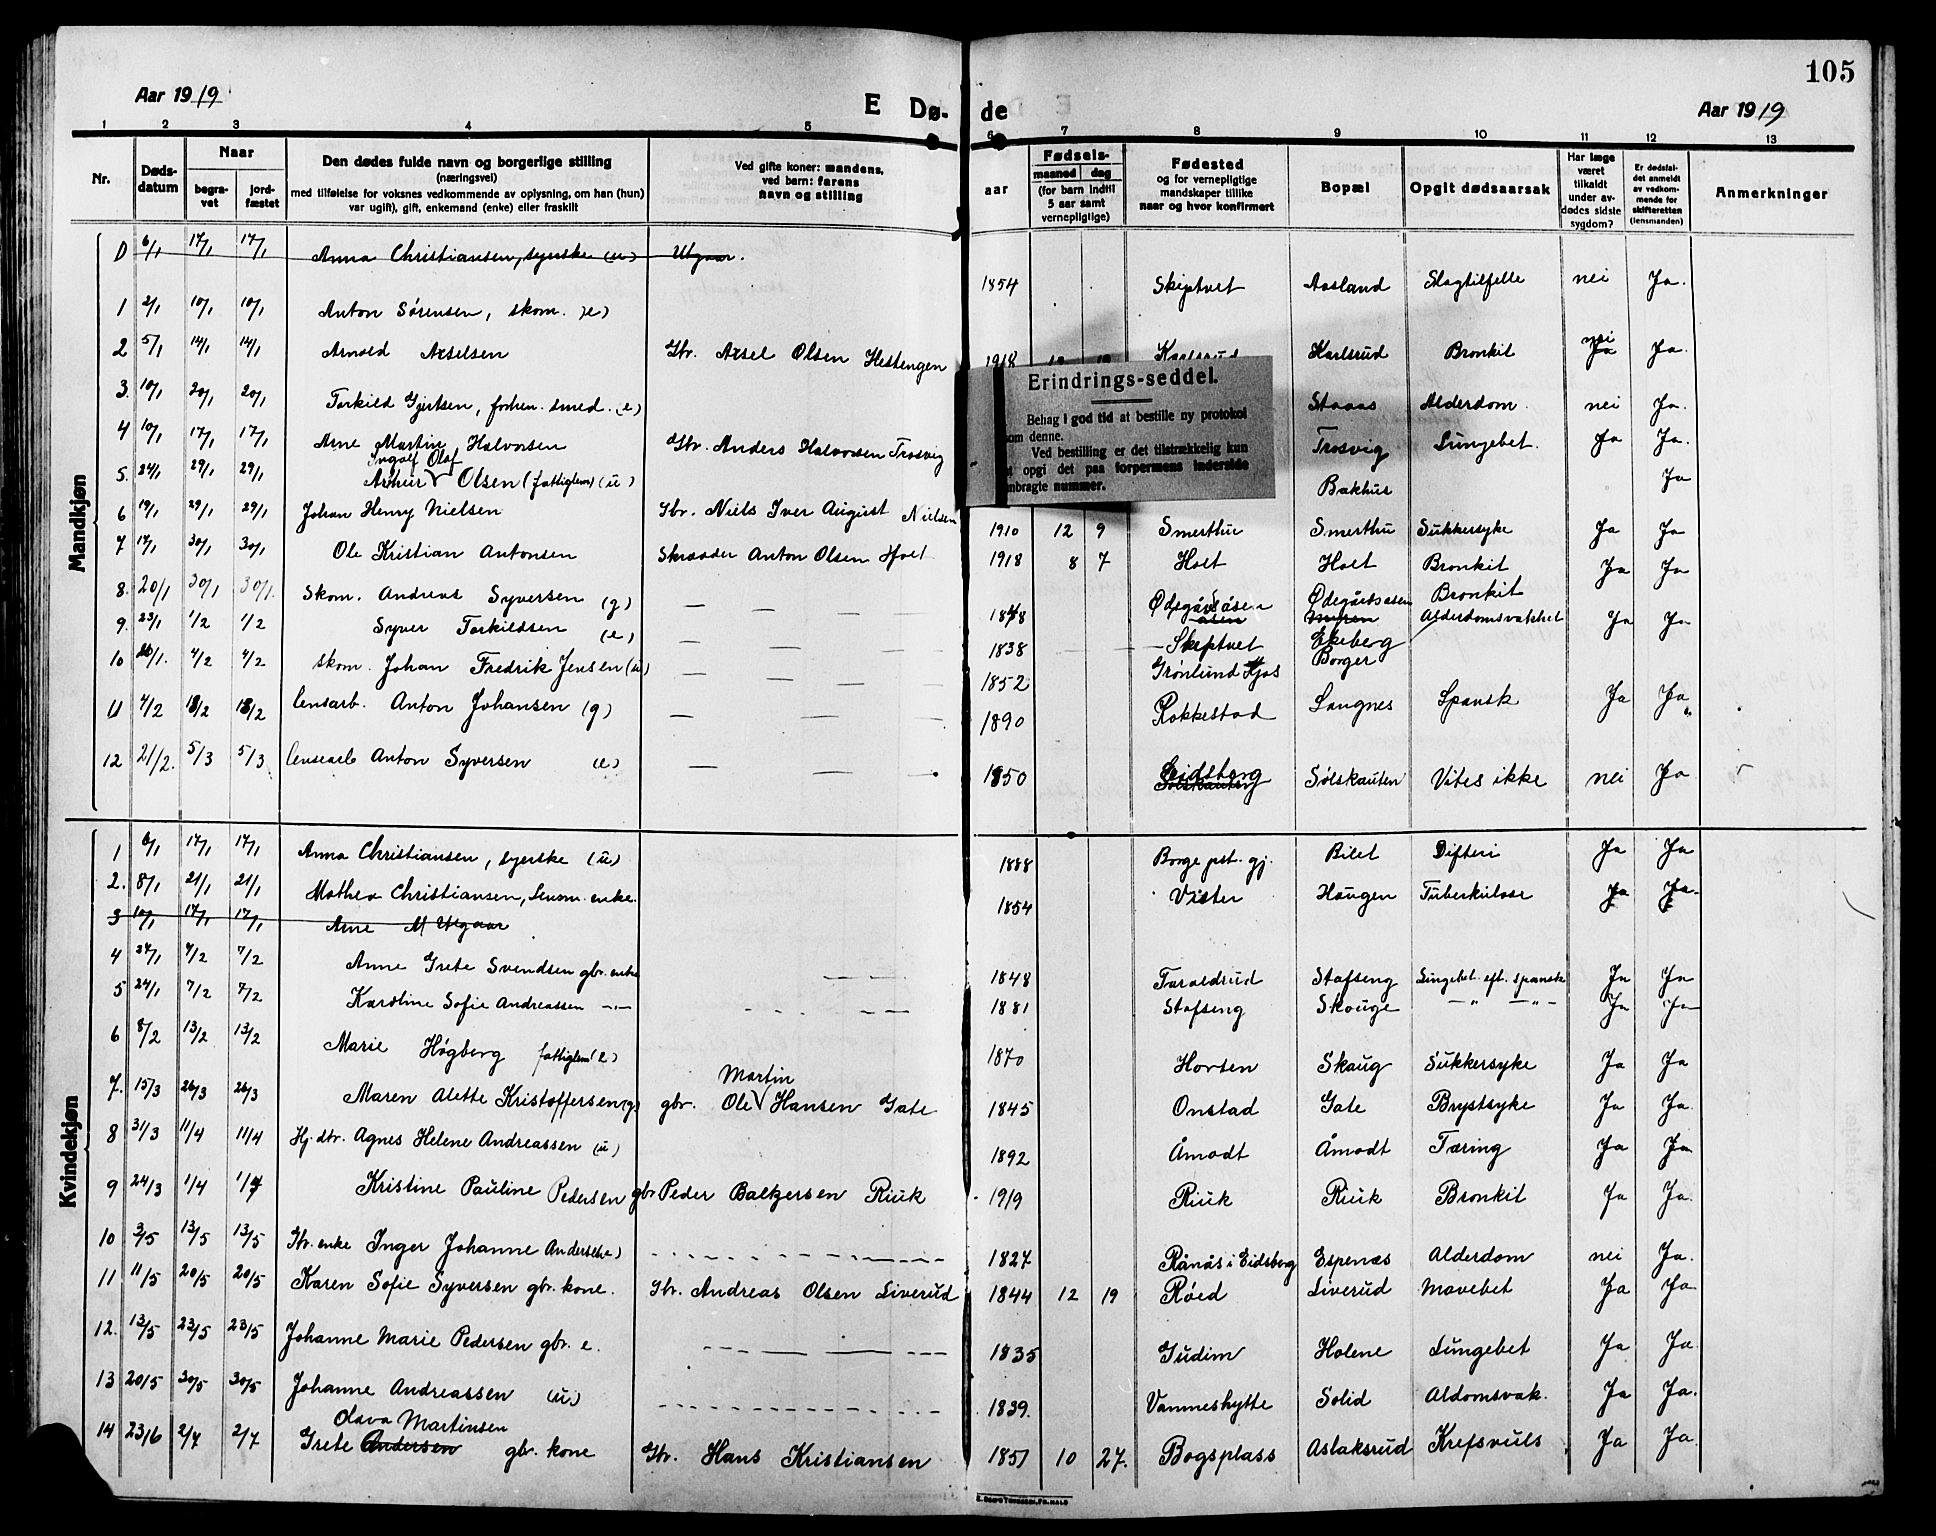 105
Aar 1919 E Dø- de Aar 1919
1 2 3 4 5 6 7 8 9 10 11 12 13
Nr.
Døds-
datum
Naar
begra-
vet
jord-
fæstet
Den dødes fulde navn og borgerlige stilling
(næringsvei)
med tilføielse for voksnes vedkommende av oplysning, om han (hun)
var ugift), gift, enkemand (enke) eller fraskilt
Ved gifte koner: mandens,
ved barn: farens
navn og stilling
aar
Fødsels-
maaned dag
(for barn indtil
5 aar samt
vernepligtige)
Fødested
og for vernepligtige
mandskaper tillike
naar og hvor konfirmert
Bopæl
Opgit dødsaarsak
Har læge
været
tilkaldt
under av-
dødes sidste
sygdom?
Er dødsfal-
det anmeldt
av vedkom-
mende for
skifteretten
(lensmanden)
Anmerkninger
Mandkjøn
6/1 17/1 17/1 Anna Christiansen, syerske (u) Utgaar.
1 2/1 10/1 10/1 Anton Sørensen, skom. (e) 1854 Skiptvet Aasland Slagtilfelle nei Ja.
2 5/1 14/1 14/1 Arnold Axelsen Gbr. Axel Olsen Hestengen 1918 Karlsrud Karlsrud Bronkit nei Ja Ja.
3. 10/1 20/1 20/1 Torkild Gjertsen, forhen. smed. (e) Alderdom. nei Ja.
4 10/1 17/1 17/1 Arne Martin Halvorsen Gbr. Anders Halvorsen Trosvig Trosvig Lungebet. Ja Ja.
5. 24/1 29/1 29/1 Arthur Ingolf Olaf Olsen (fattiglem) (u) Bakhus Ja
6 19/1 29/1 29/1 Johan Henry Nielsen Gbr. Niels Iver August Nielsen 1910 12 9 Smerthu Smerthu Sukkersyke Ja Ja
7 17/1 30/1 30/1 Ole Kristian Antonsen Skrædder Anton Olsen Holt 1918 8 7 Holt Holt Bronkit Ja Ja
8. 20/1 30/1 30/1. Skom. Andreas Syversen (g) — — — 1848 Ødegårdsåsen Ødegårdsåsen Bronkit
9. 23/1 1/2 1/2 Syver Torkildsen (e) — — — 1838 Skiptvet Ekeberg Alderdomsvakhet Ja Ja
10 4/2 4/2 skom. Johan Fredrik Jensen (u) — — — 1852 Grønlund Borger
11 4/2 18/2 18/2 Anton Johansen (g) — — — 1890 Rokkestad Langnes Spansk Ja Ja
12 21/2. 5/3 5/3 Anton Syversen (e) — — — 1850 Eidsberg Sølskauten Vites ikke nei Ja
Kvindekjøn
1 6/1 17/1 17/1 Anna Christiansen, syerske (u) 1888 Borge pst. gj. Bilet Difteri Ja Ja
2. 8/1 21/1 21/1 Mathea Christiansen, Lensm. enke. 1854 Vister Haugen Tuberkulose Ja Ja.
3 10/1 17/1 17/1 Arne M Utgaar
4 27/1 7/2 7/2 Anne Grete Svendsen gbr. enke — — — 1848 Taraldrud Stafseng Lungebet. eft. spansk Ja Ja
5 24/1 7/2 7/2 Karoline Sofie Andreassen —"— 1881 Stafseng Skouge —"— —"— Ja Ja
6 8/2 13/2 13/2 Marie Høgberg fattiglem (e) 1870 Horten Skaug Sukkersyke Ja Ja
7. 15/3 26/3 26/3 Maren Alette Kristoffersen (g) gbr. Ole Martin Hansen Gate 1845 Onstad Gate Brystsyke Ja Ja.
8 31/3 11/4 11/4 Hj. dtr. Agnes Helene Andreassen (u) 1892 Åmodt Åmodt Tæring Ja Ja
9 24/3 1/4 1/4 Kristine Pauline Pedersen gbr Peder Baltzersen Riuk 1919 Riuk Riuk Bronkit Ja Ja.
10 3/5 13/5 13/5 Gbr. enke Inger Johanne Andersen (e) 1827 Rånås i Eidsberg Espenæs Alderdom nei Ja.
11 11/5 20/5 20/5 Karen Sofie Syversen gbr. kone. Gbr. Andreas Olsen Liverud 1844 12 19 Røed Liverud Mavebet Ja Ja
12. 13/5 23/5 23/5 Johanne Marie Pedersen gbr. e. 1835 Gudim Holene Lungebet Ja Ja.
13 20/5 30/5 30/5 Johanne Andreassen (u) 1839. Vammeshytte Solid Aldomsvak. Ja Ja.
14 23/6 2/7 2/7 Grete Andersen Olava Martinsen gbr. kone Gbr. Hans Kristiansen 1851 10 27. Bogsplass Aslaksrud Krefsvuls Ja Ja.
Erindrings-seddel.
Behag i god tid at bestille ny protokol
om denne.
Ved bestilling er det tilstrækkelig kun
opgi det paa forpermens inderside
mbragte nummer.